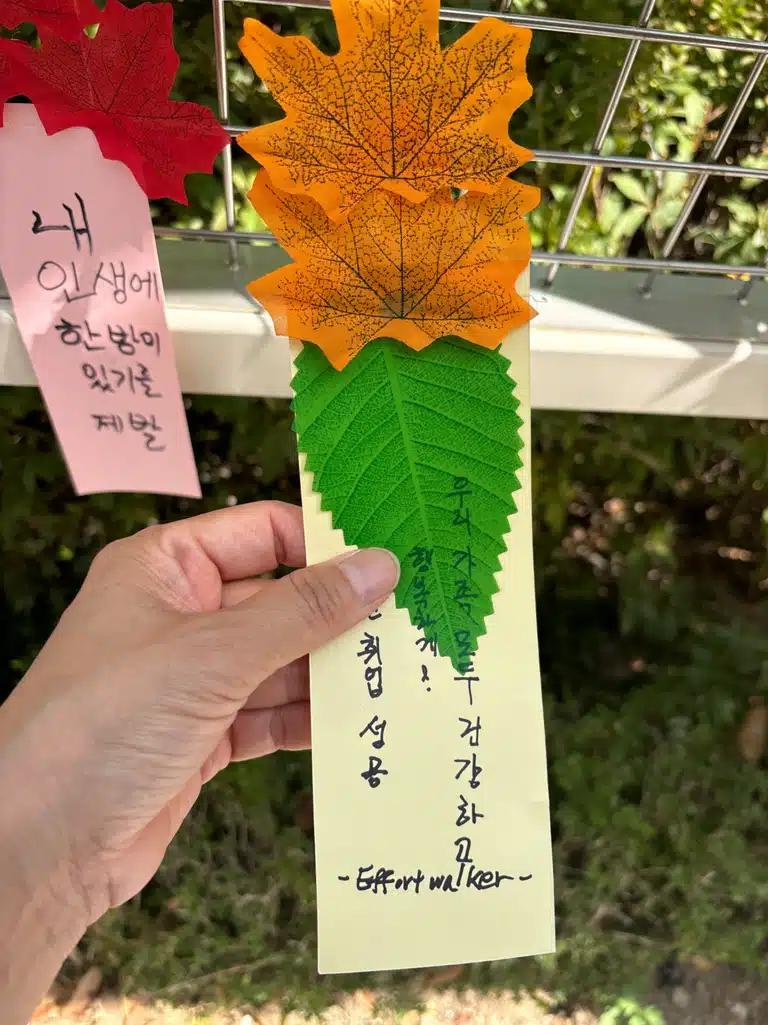 내
인생에
한방이
있기를
제발
우리 가족 모두 건강하고
행복하게!
취업 성공
-Effort walker-